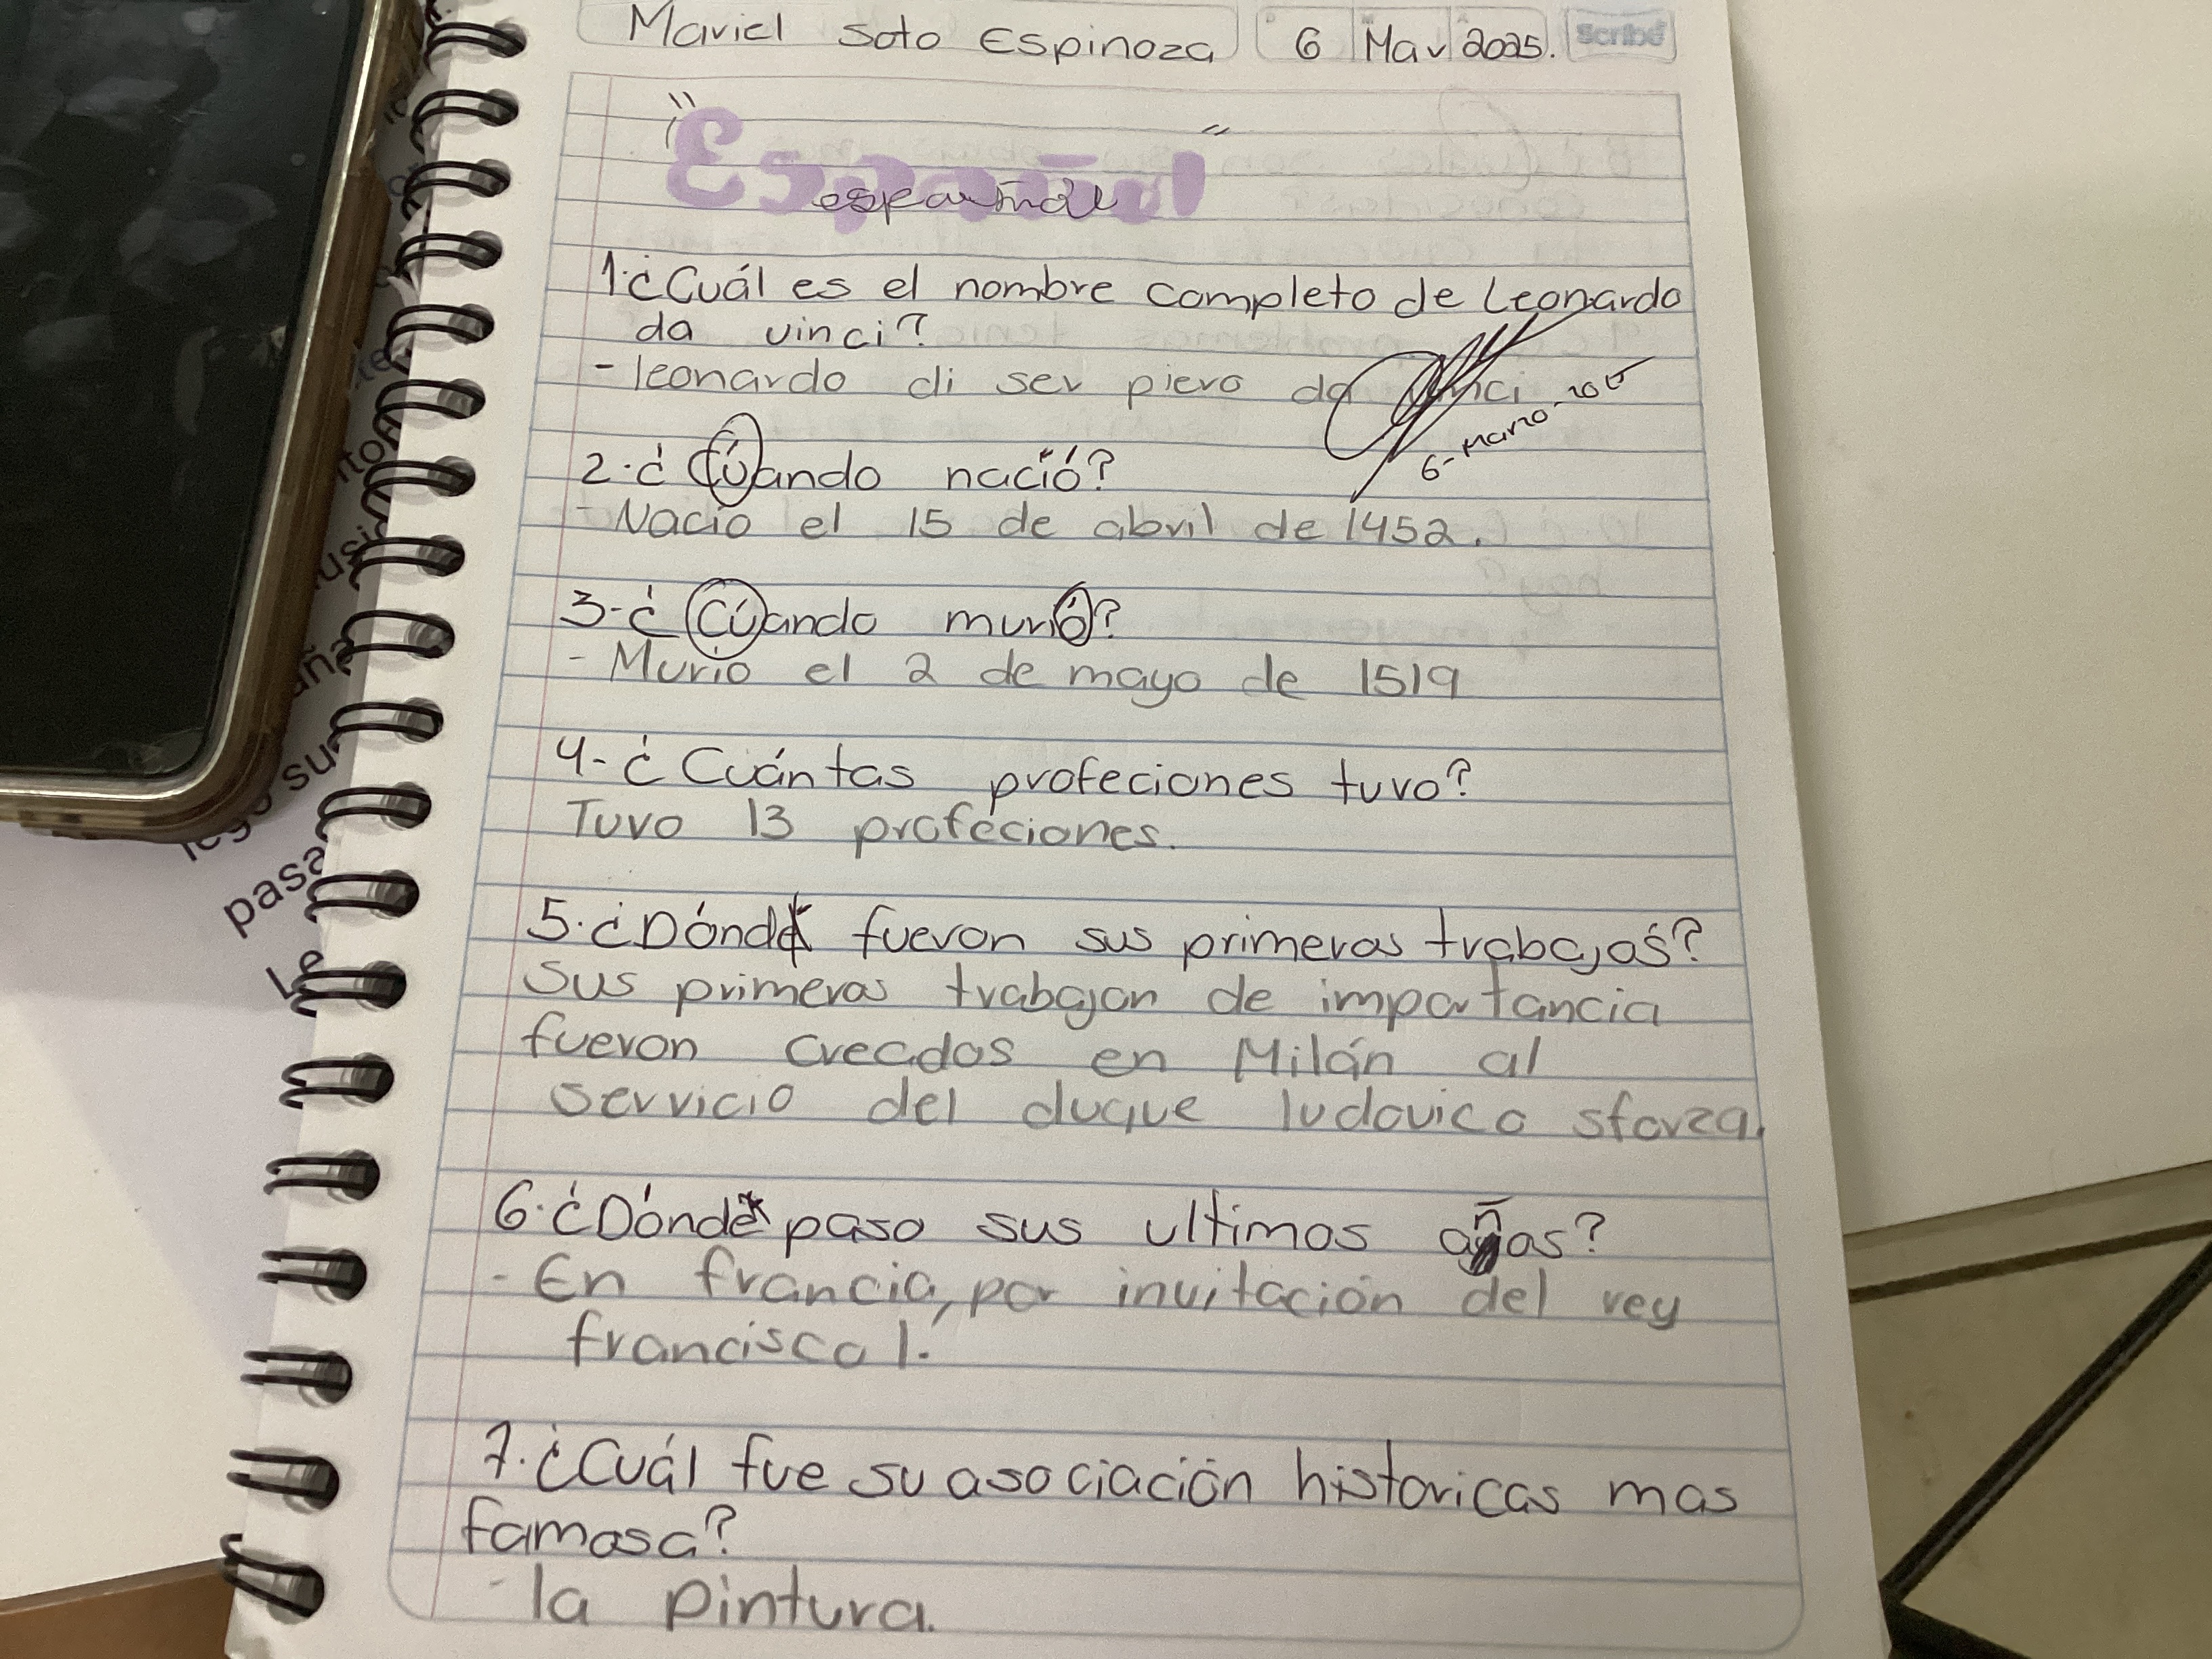 Mariel Soto Espinoza 6 Mar 2025. Scribe
"Español"
español
1.¿Cuál es el nombre completo de Leonardo
da vinci?
- leonardo di ser piero da vinci
6- Marzo - 2025
2.¿Cúando nació?
- Nacio el 15 de abril de 1452.
3-¿Cúando murió?
- Murio el 2 de mayo de 1519
4-¿Cuántas profeciones tuvo?
Tuvo 13 profeciones.
5.¿Dónde fueron sus primeros trabajos?
Sus primeros trabajon de importancia
fueron creados en Milán al
servicio del duque ludovico sforza.
6.¿Dónde paso sus ultimos años?
- En francia, por invitación del rey
francisco I.
7.¿Cuál fue su asociación historicas mas
famosa?
- la pintura.
pasa
su
Le